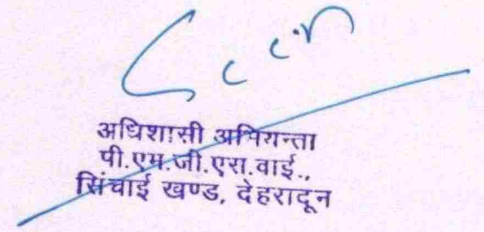 अधिशासी अभियन्ता
पी.एम.जी.एस.वाई.,
सिंचाई खण्ड, देहरादून